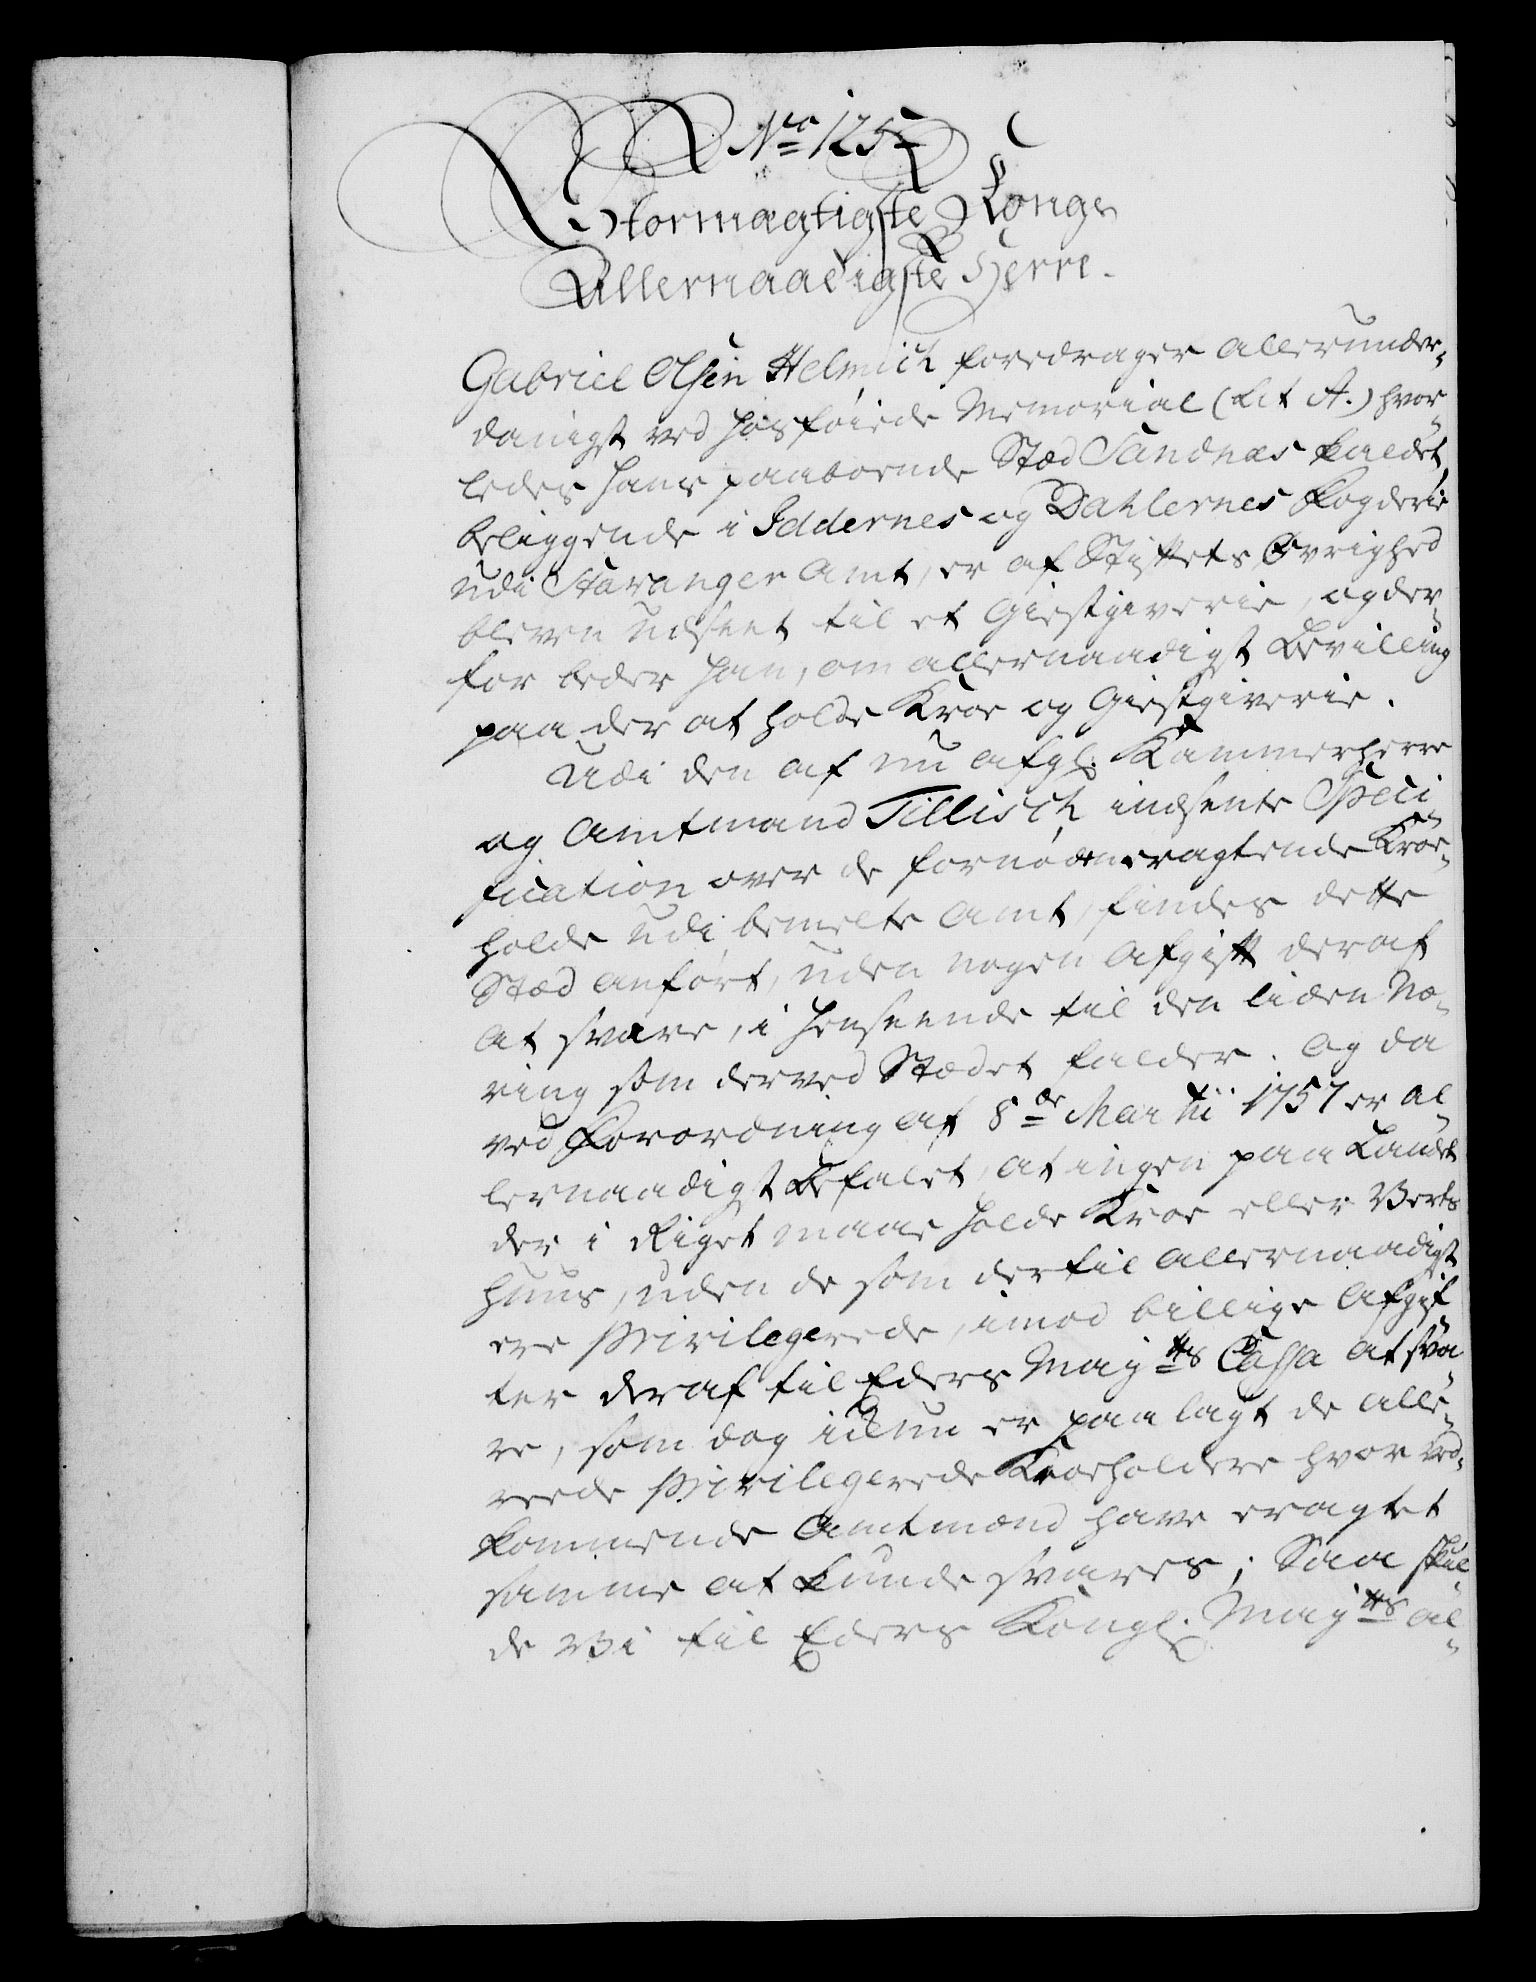 No 125
Stormægtigste Konge
Allernaadigste Herre.
Gabriel Olsen Helmich foredrager allerunder„
danigst ved hosføiede Memorial (Lit A.) hvor„
ledes hans paaboende Stæd Sandnæs kaldet,
beliggende i Jddernes og Dahlernes Fogderie
udi Stavanger Amt, er af Stiftets Øvrighed
bleven udseet til et Giestgiverie, og der„
for beder han, om allernaadigst Bevilling
paa der at holde Kroe og Giestgiverie.
Udi den af nu afgl. Kammerherre
og Amtmand Tillisch indsente Speci„
fication over de fornøden eragtende Kroe„
holde udi bemelte Amt, findes dette
Stæd anført, uden nogen Afgift deraf
at svare, i henseende til den liden Næ„
ring som derved Stædet falder. Og da
ved Forordning af 8de Martii 1757 er al„
lernaadigst befalet, at ingen paa Landet
der i Riget maae holde Kroe eller Verts
huus, uden de som dertil allernaadigst
ere Privilegerede, imod billige Afgif„
ter deraf til Eders Mayts Cassa at sva„
re, som dog ikkun er paalagt de alle„
reede Privilegerede Kroeholdere hvor ved„
kommende Amtmænd have eragtet
samme at kunde svares; Saa skul„
de Vi til Eders Kongl. Mayts al„